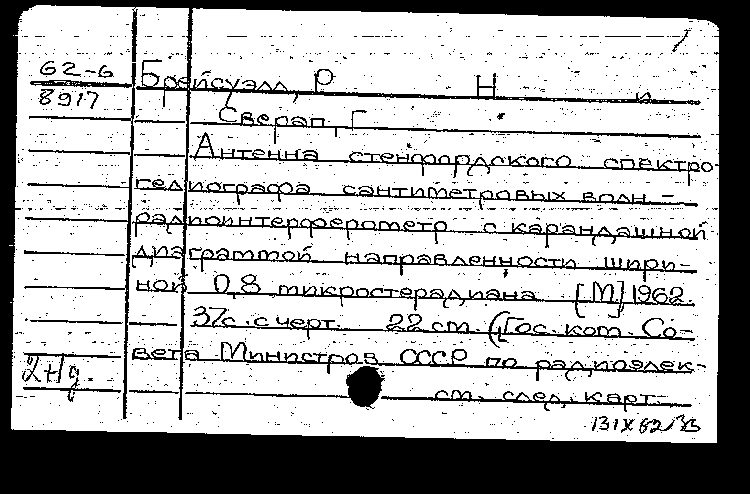 62-6
8917
Брейсуэлл, Р Н и
Сверап, Г
Антенна стенфордского спектро
гелиографа сантиметровых волн -
радиоинтерферометр с карандашной
диаграммой направленности шири-
ной 0,8 микростерадиана [М], 1962.
37с. с черт. 22 см. (Гос. ком. Со-
вета Министров СССР по радиоэлек-
2+1д.
см. след. карт.